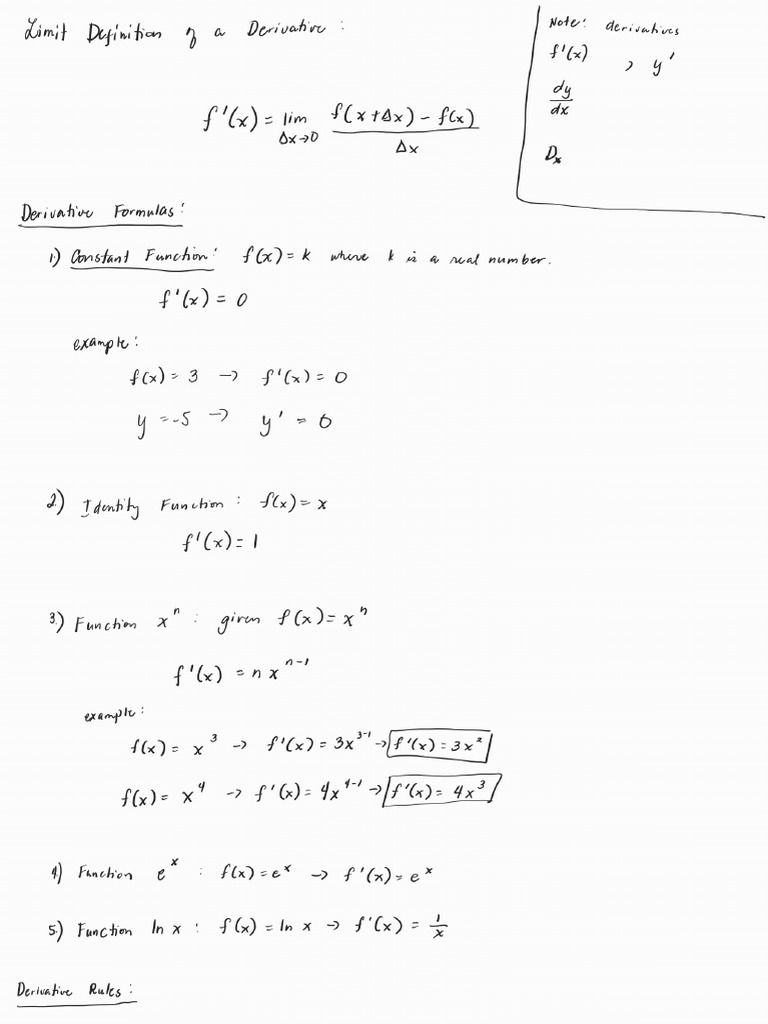 Limit Definition of a Derivative:
Note: derivatives
f'(x) , y'
dy/dx
Dx
f'(x) = lim Δx→0 f(x+Δx) - f(x) / Δx
Derivative Formulas:
1.) Constant Function: f(x) = k where k is a real number.
f'(x) = 0
example:
f(x) = 3 → f'(x) = 0
y = -5 → y' = 0
2.) Identity Function: f(x) = x
f'(x) = 1
3.) Function xⁿ: given f(x) = xⁿ
f'(x) = n xⁿ⁻¹
example:
f(x) = x³ → f'(x) = 3x³⁻¹ → f'(x) = 3x²
f(x) = x⁴ → f'(x) = 4x⁴⁻¹ → f'(x) = 4x³
4.) Function eˣ: f(x) = eˣ → f'(x) = eˣ
5.) Function ln x: f(x) = ln x → f'(x) = 1/x
Derivative Rules: